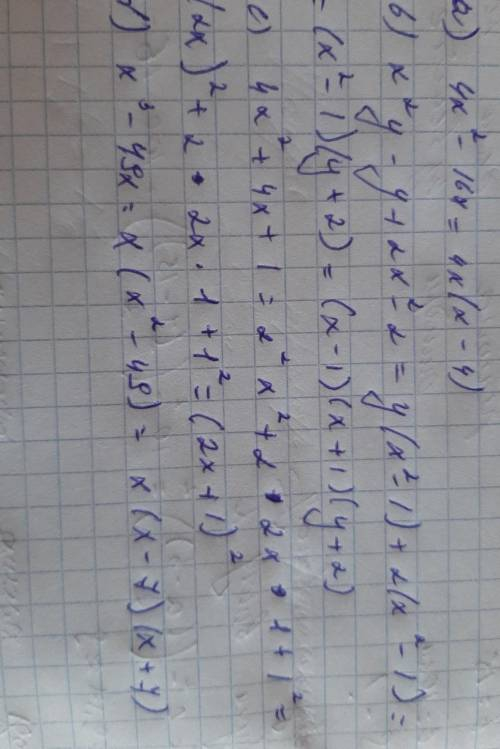 a) 4x² - 16x = 4x(x - 4)
b) x²y - y + 2x² - 2 = y(x² - 1) + 2(x² - 1) =
= (x² - 1)(y + 2) = (x - 1)(x + 1)(y + 2)
c) 4x² + 4x + 1 = 2²x² + 2 · 2x · 1 + 1² =
(2x)² + 2 · 2x · 1 + 1² = (2x + 1)²
d) x³ - 49x = x(x² - 49) = x(x - 7)(x + 7)